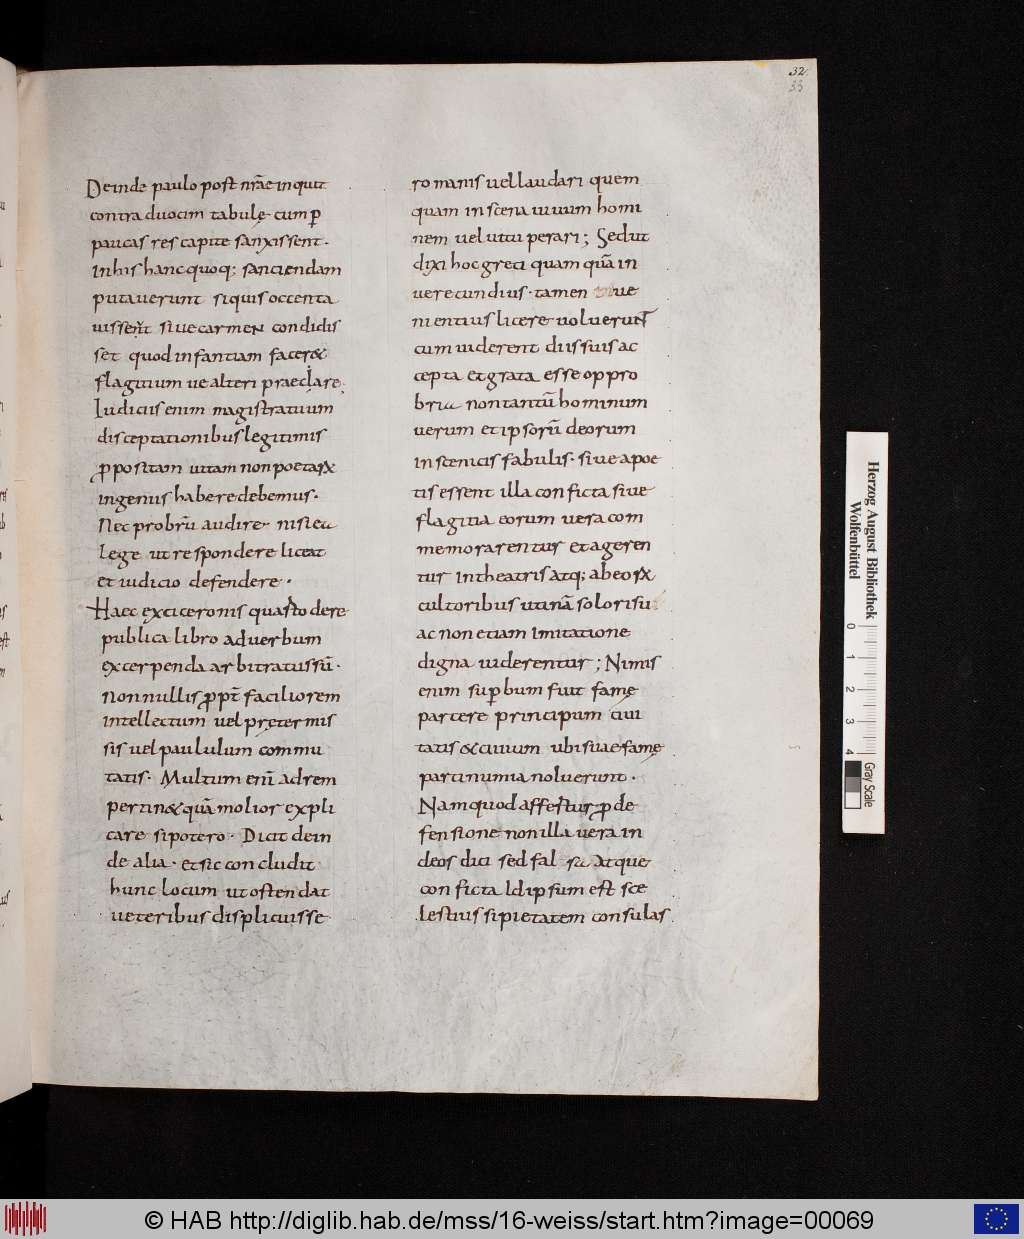 32
33
Deinde paulo post nr̄ae inquit
contra duocim tabulę cum p̄
paucas res capite sanxissent.
In his hanc quoq; sanciendam
putaverunt siquis occenta
uissen̄t siue carmen condidis
set quod infantiam facer&
flagitium ue alteri praeclare.
Iudiciis enim magistratuum
disceptationibus legitimis
ꝓpositam uitam non poetaꝝ
ingeniis habere debemus.
Nec probrū audire nisi ea
lege ut respondere liceat
et iudicio defendere.
Haec ex ciceronis quarto de re
publica libro ad uerbum
excerpenda arbitratus sū.
non nullis ꝓpt̄ faciliorem
intellectum uel prętermis
sis uel paululum commu
tatis. Multum eni̅ ad rem
pertin& quā molior expli
care si potero. Dicit dein
de alia. et sic concludit
hunc locum ut ostendat
ueteribus displicuisse
romanis uel laudari quem
quam in scena uiuum homi
nem uel uituperari; Sed ut
dixi hoc greci quamquā in
uerecundius. tamen ue
nientius licere uoluerunt
cum uiderent diis suis ac
cepta et grata esse oppro
bria non tantū hominum
uerum et ipsorū deorum
in scenicis fabulis. siue a poe
tis essent illa conficta siue
flagitia eorum uera com
memorarentur et ageren
tur in theatris atq; ab eoꝝ
cultoribus utinā solo risu
ac non etiam imitatione
digna uiderentur; Nimis
enim suꝑbum fuit famę
parcere principum ciui
tatis & ciuium ubi suae famę
parci numina noluerunt.
Nam quod affertur ꝓ de
fensione non illa uera in
deos dici sed fal sa atque
conficta Id ipsum est sce
lestius si pietatem consulas
Herzog August Bibliothek
Wolfenbüttel
0 1 2 3 4
Gray Scale
© HAB http://diglib.hab.de/mss/16-weiss/start.htm?image=00069